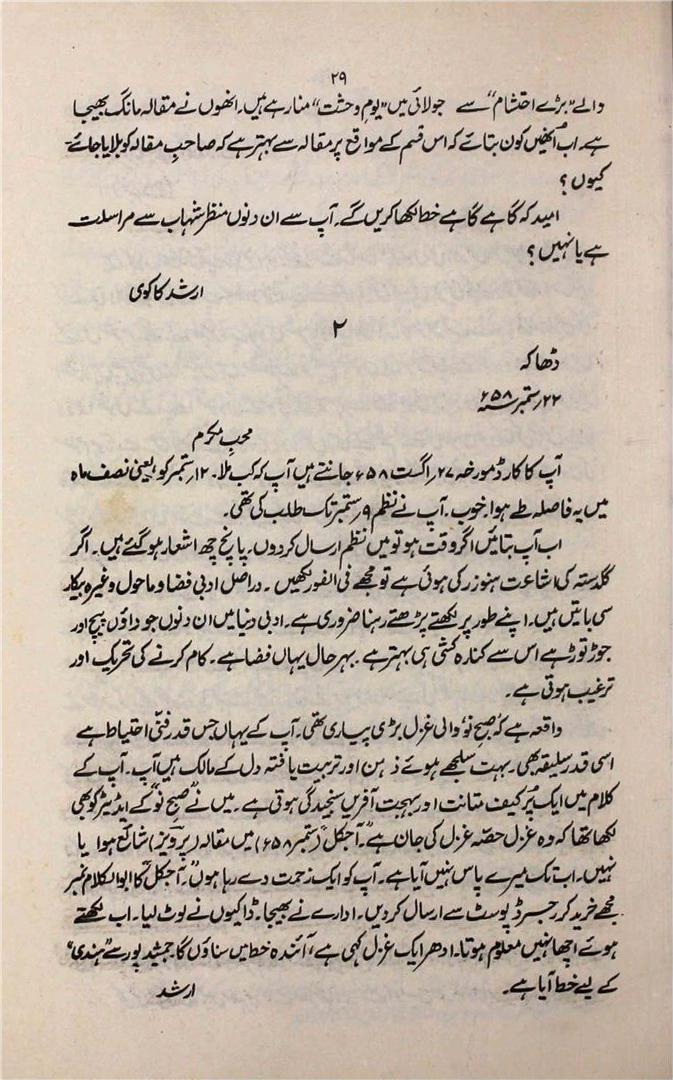 ۲۹
والے "بڑے احتشام" سے جولائی میں "یوم وحشت" منا رہے ہیں۔ انھوں نے مقالہ مانگ بھیجا
ہے۔ اب اُنھیں کون بتائے کہ اس قسم کے مواقع پر مقالہ سے بہتر ہے کہ صاحبِ مقالہ کو بلایا جائے۔
کیوں؟
امید کہ گاہے گاہے خط لکھا کریں گے۔ آپ سے ان دنوں منظر شہاب سے مراسلت
ہے یا نہیں؟
ارشد کاکوی
۲
ڈھاکہ
۲۲؍ ستمبر ۵۸ء
محبِ مکرم
آپ کا کارڈ مورخہ ۲۷؍ اگست ۵۸ء جانتے ہیں آپ کہ کب ملا۔ ۱۲؍ ستمبر کو، یعنی نصف ماہ
میں یہ فاصلہ طے ہوا۔ خوب۔ آپ نے نظم ۹؍ ستمبر تک طلب کی تھی۔
اب آپ بتائیں اگر وقت ہو تو میں نظم ارسال کر دوں۔ پانچ چھ اشعار ہو گئے ہیں۔ اگر
گلدستہ کی اشاعت ہنوز رکی ہوئی ہے تو مجھے فی الفور لکھیں۔ دراصل ادبی فضا و ماحول وغیرہ بیکار
سی باتیں ہیں۔ اپنے طور پر لکھتے پڑھتے رہنا ضروری ہے۔ ادبی دنیا میں ان دنوں جو داؤں پیچ اور
جوڑ توڑ ہے اس سے کنارہ کشی ہی بہتر ہے۔ بہر حال یہاں فضا ہے۔ کام کرنے کی تحریک اور
ترغیب ہوتی ہے۔
واقعہ ہے کہ صبحِ نو، والی غزل بڑی پیاری تھی۔ آپ کے یہاں جس قدر فنّی احتیاط ہے
اسی قدر سلیقہ بھی۔ بہت سلجھے ہوئے ذہن اور تربیت یافتہ دل کے مالک ہیں آپ۔ آپ کے
کلام میں ایک پُر کیف متانت اور بہجت آفریں سنجیدگی ہوتی ہے۔ میں نے "صبح نو" کے ایڈیٹر کو بھی
لکھا تھا کہ وہ غزل حصّہ غزل کی جان ہے۔ "آجکل" (ستمبر ۵۸ء) میں مقالہ (پرویز) شائع ہوا یا
نہیں۔ اب تک میرے پاس نہیں آیا ہے۔ آپ کو ایک زحمت دے رہا ہوں۔ "آجکل" کا ابوالکلام نمبر
مجھے خرید کر رجسٹرڈ پوسٹ سے ارسال کر دیں۔ ادارے نے بھیجا۔ ڈاکیوں نے لوٹ لیا۔ اب لکھتے
ہوئے اچھا نہیں معلوم ہوتا۔ ادھر ایک غزل کہی ہے، آئندہ خط میں سناؤں گا۔ جمشید پور سے "ہندی"
کے لیے خط آیا ہے۔
ارشد